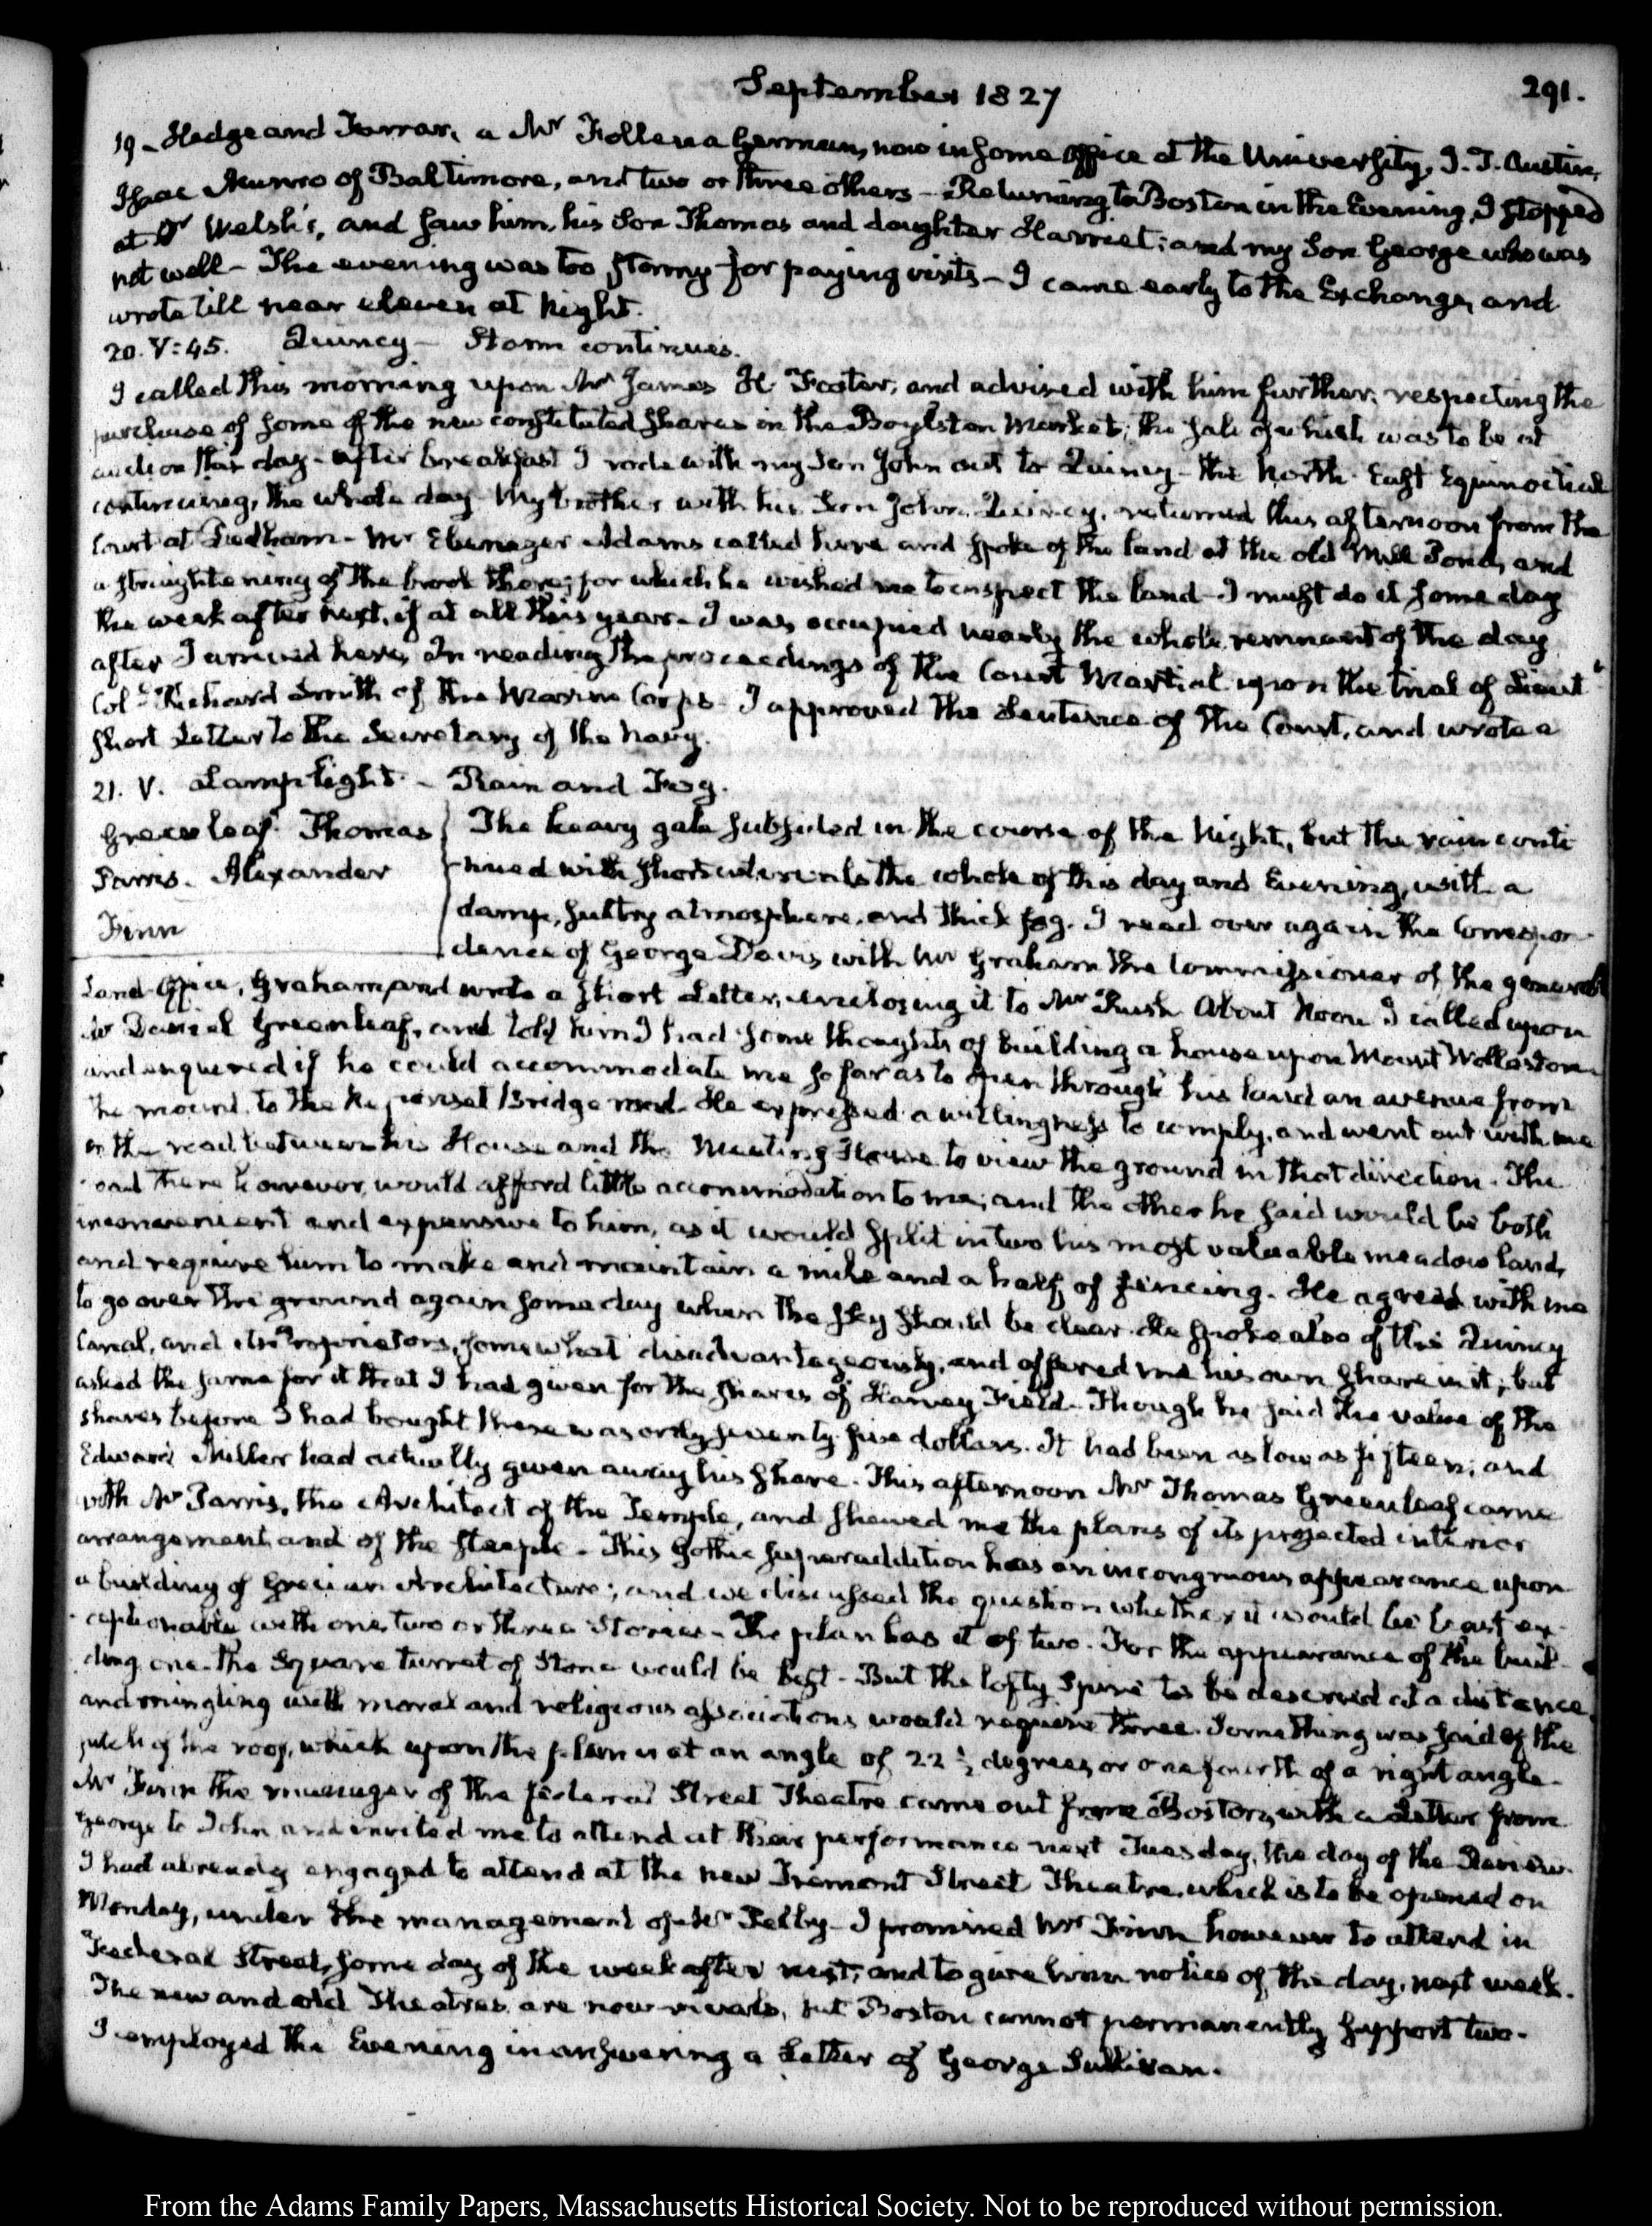 September 1827
291.
19 - Hedge and Farrar, a Mr Follen a German, now in some office at the University, I. T. Austin,
Isaac Munro of Baltimore, and two or three others - Returning to Boston in the Evening, I stopped
at Dr Welsh's, and saw him, his Son Thomas and daughter Harriet; and my Son George who was
not well - The evening was too stormy for paying visits - I came early to the Exchange, and
wrote till near eleven at Night.
20. V:45. Quincy - Storm continues.
I called this morning upon Mr James H. Foster, and advised with him further, respecting the
purchase of some of the new constituted shares in the Boylston Market; the sale of which was to be at
auction this day - after breakfast I rode with my Son John out to Quincy - the North-East Equinoctial
continuing, the whole day - My brother with his Son John Quincy, returned this afternoon from the
Court at Dedham - Mr Ebenezer Adams called here and spoke of the land at the old Mill Pond, and
a straightening of the brook there; for which he wished me to inspect the land - I must do it some day
the week after next, if at all this year - I was occupied nearly the whole remnant of the day
after I arrived here, in reading the proceedings of the Court Martial upon the trial of Lieut
Col. Richard Smith of the Marine Corps - I approved the Sentence of the Court, and wrote a
short Letter to the Secretary of the Navy.
21. V. Lamp light - Rain and Fog.
Greenleaf. Thomas
Parris. Alexander
Finn
The heavy gale subsided in the course of the Night, but the rain conti
nued with short intervals the whole of this day and Evening, with a
damp, sultry atmosphere, and thick fog. I read over again the Correspon
dence of George Davis with Mr Graham the Commissioner of the general
Land Office, Graham, and wrote a short Letter, enclosing it to Mr Rush. About Noon I called upon
Mr Daniel Greenleaf, and told him I had some thoughts of building a house upon Mount Wollaston
and enquired if he could accommodate me so far as to open through his land an avenue from
the mount, to the Neponset Bridge road. He expressed a willingness to comply, and went out with me
on the road between his House and the Meeting House to view the ground in that direction. The
road there however, would afford little accommodation to me; and the other he said would be both
inconvenient and expensive to him, as it would split in two his most valuable meadow land,
and require him to make and maintain a mile and a half of fencing. He agreed with me
to go over the ground again some day when the sky should be clear. He spoke also of the Quincy
Canal, and its Proprietors, somewhat disadvantageously, and offered me his own share in it; but
asked the same for it that I had given for the shares of Harvey Field - Though he said the value of the
shares before I had bought these was only seventy-five dollars. It had been as low as fifteen; and
Edward Miller had actually given away his share. This afternoon Mr Thomas Greenleaf came
with Mr Parris, the Architect of the Temple, and shewed me the plans of its projected interior
arrangement and of the steeple - This Gothic superaddition has an incongruous appearance upon
a building of Grecian Architecture; and we discussed the question whether it would be least ex-
ceptionable with one, two or three Stories - The plan has it of two. For the appearance of the buil-
ding, one - the Square turret of Stone would be best - But the lofty Spire to be descried at a distance,
and mingling with moral and religious associations would require three. Something was said of the
pitch of the roof, which upon the plan is at an angle of 22 ½ degrees, or one fourth of a right angle -
Mr Finn the manager of the federal Street Theatre came out from Boston, with a Letter from
George to John and invited me to attend at their performance next Tuesday, the day of the Review.
I had already engaged to attend at the new Tremont Street Theatre, which is to be opened on
Monday, under the management of Mr Pelby - I promised Mr Finn however to attend in
Federal Street, some day of the week after next; and to give him notice of the day, next week.
The new and old Theatres are now rivals, but Boston cannot permanently support two -
I employed the Evening in answering a Letter of George Sullivan.
From the Adams Family Papers, Massachusetts Historical Society. Not to be reproduced without permission.